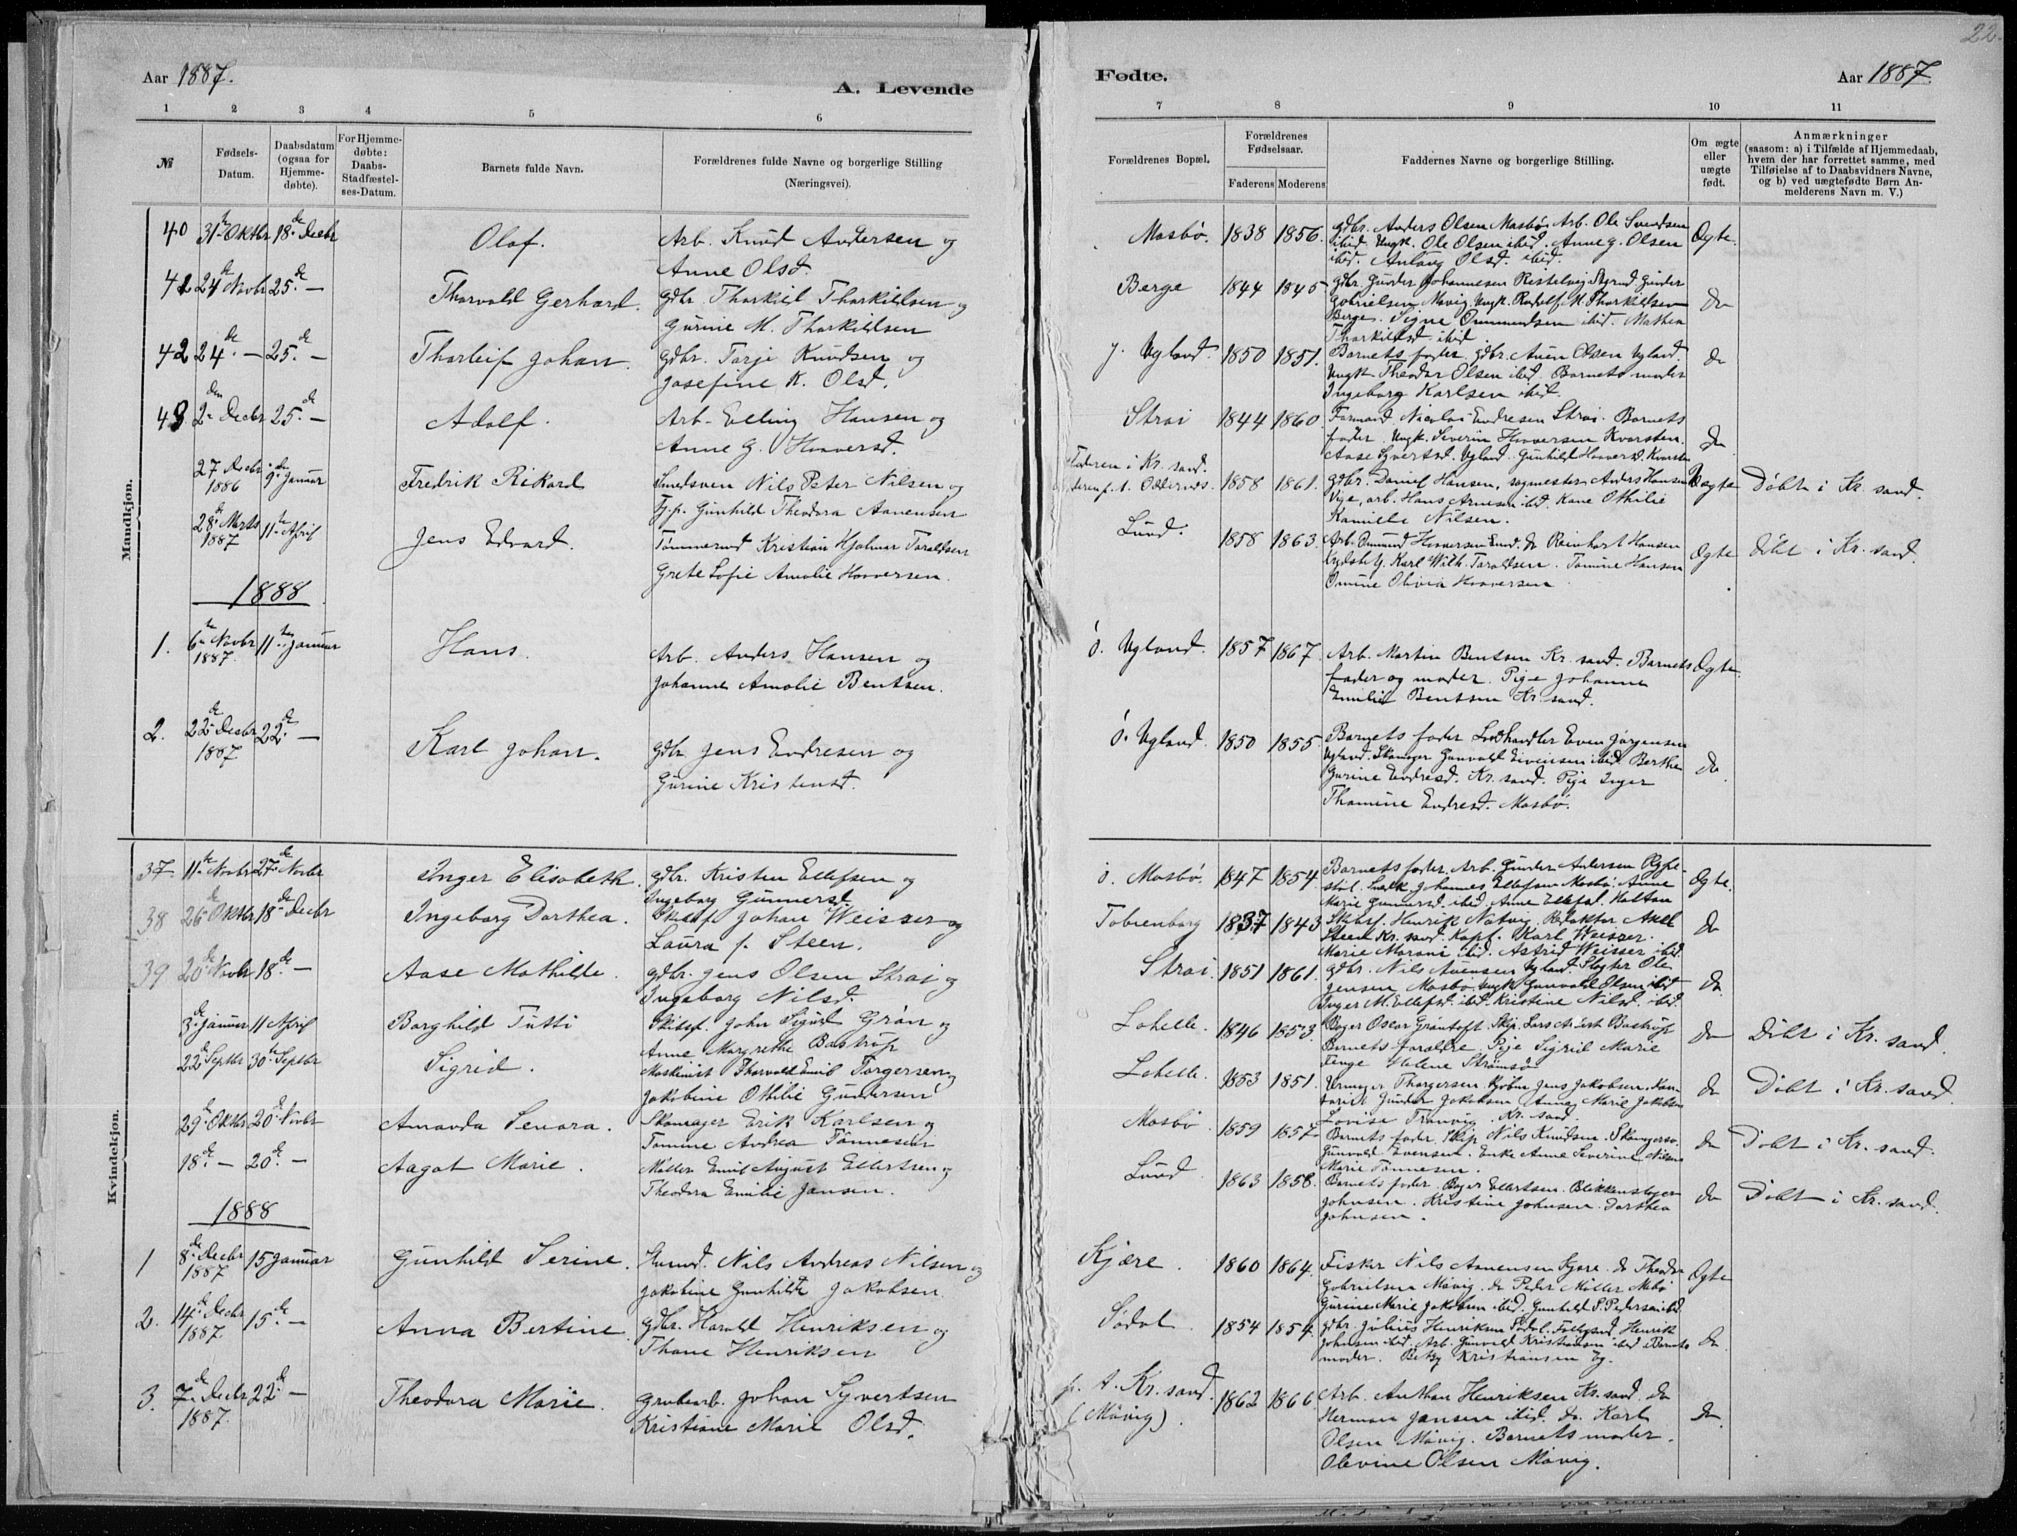 22.
Aar 1887.
A. Levende
Fødte.
Aar 1887.
1 2 3 4 5 6
7 8 9 10 11
№
Fødsels-
Datum.
Daabsdatum
(ogsaa for
Hjemme-
døbte).
For Hjemme-
døbte:
Daabs-
Stadfæstel-
ses-Datum.
Barnets fulde Navn.
Forældrenes fulde Navne og borgerlige Stilling
(Næringsvei).
Forældrenes Bopæl.
Forældrenes
Fødselsaar.
Faderens
Moderens
Faddernes Navne og borgerlige Stilling.
Om ægte
eller
uægte
født.
Anmærkninger
(saasom: a) i Tilfælde af Hjemmedaab,
hvem der har forrettet samme, med
Tilføielse af to Daabsvidners Navne,
og b) ved uægtefødte Børn An-
melderens Navn m. V.)
Mandkjøn.
40 31te Oktbr 18de Decbr Olaf. Arb. Knud Andersen og
Anne Olsd.
Mosbø. 1838 1856. Gdbr. Anders Olsen Mosbø. Arb. Ole Svendsen
ibid. Ungk. Ole Olsen ibid. Anne G. Olsen
ibid. Anlaug Olsd. ibid.
Ægte.
41 24de Novbr 25de — Thorvald Gerhard. Gdbr. Thorkild Thorkildsen og
Gurine M. Thorkildsen
Berge 1844 1845 Gdbr. Gunder Johannesen Ristelvig Styrmd. Gunder
Gabrielsen Møvig. Ungk. Rudolf M. Thorkildsen
Berge. Signe Ommundsen ibid. Mathea
Thorkildsd. ibid.
do
42 24de — 25de — Thorleif Johan. Gdbr. Tarje Knudsen og
Josefine K. Olsd.
y. Ugland. 1850 1851. Barnets fader. Gdbr. Auen Olsen Ugland.
Ungk. Theodor Olsen ibid. Barnets moder
Ingeborg Karlsen ibid.
do
43 2den Decbr 25de — Adolf. Arb. Elling Hansen og
Anne G. Haaversd.
Strai 1844 1860. Formand Nicolai Endresen Strai. Barnets
fader. Ungk. Severin Haaversen Kvarsten.
Aase Syvertsd. Ugland. Gunhild Haaversd. Kvarsten
do
27 Decbr 1886 9de Januar Fredrik Rikard Smedsven Nils Peter Nilsen og
Fp. Gunhild Theodora Aanensen
Faderen i Kr. sand.
1858 1861. Gdbr. Daniel Hansen, sagmester Anders Hansen
Vige, arb. Hans Arnesen ibid. Kone Othilie
Kamille Nilsen.
Uægte Døbt i Kr. sand.
28de Marts 1887 11te April Jens Edvard. Tømmermd Kristian Hjalmar Taraldsen
Grete Sofie Amalie Haaversen.
Lund. 1858 1863. Arb. Omund Haaversen Lund. do Reinhart Hansen
Karl Wilh. Taraldsen. Tomine Hansen
Omine Olivia Haaversen
Ægte Døbt i Kr. sand.
1888
1. 6te Novbr 1887. 11te Januar Hans. Arb. Anders Hansen og
Johanne Amalie Bentsen.
ø. Ugland. 1857 1867. Arb. Martin Bentsen Kr. sand. Barnets
fader og moder. Pige Johanne
Emilie Bentsen Kr. sand.
Ægte.
2. 22de Decbr 1887 22de — Karl Johan. Gdbr. Jens Endresen og
Gurine Kristensd.
ø. Ugland. 1850 1855. Barnets fader Landhandler Even Jørgensen
Ugland. Skomager Gunvald Eivensen ibid. Berthe
Gurine Endresd. Kr. sand. Pige Inger
Thomine Endresd. Mosbø.
do
Kvindekjøn.
37. 11te Novbr 27de Novbr Inger Elisabeth. Gdbr. Kristen Ellefsen og
Ingeborg Gunnersd.
ø. Mosbø. 1847 1854. Barnets fader, Arb. Gunder Andersen Rygge-
støl. Johannes Ellefsen Mosbø. Anne
Marie Gunnersd. ibid. Anne Ellefsd.
Ægte.
38 26de Oktbr 18de Decbr Ingeborg Dorthea. Skibsf. Johan Weisser og
Laura f. Steen.
Tobienborg 1837 1843 Skibsf. Henrik Natvig. Redaktør Axel
Steen Kr. sand. Kapt. Karl Weisser.
Marie ibid. Astrid Weisser ibid.
do
39 20de Novbr 18de — Aase Mathilde. Gdbr. Jens Olsen Strai og
Ingeborg Nilsd.
Strai. 1851 1861. Gdbr. Nils Auensen Ugland. Slagter Ole
Jensen Mosbø. Ungk. Gunvald Olsen ibid
Inger M. Ellefsd. ibid. Kristine Nilsd. ibid.
do
3de Januar 11 April Borghild Tutti Skibsf. John Sigurd Grøn og
Anne Margrethe Bastrup
Lahelle. 1846 1853. Boger Oscar Grøntoft. Skp. Lars Bastrup
Barnets forældre. Pige Sigrid Marie
Helene Strømsø
do Døbt i Kr. sand.
22de Septbr 30te Septbr Sigrid. Maskinist Thorvald Emil Torgersen og
Jakobine Othilie Gundersen
Lahelle. 1853 1851. Urmager Thorgersen, Kjøbm. Jens Jakobsen, Kon-
torist Gunder Jakobsen Anne Marie Jakobsen
Lovise Tranvig. Kr. sand
do Døbt i Kr. sand.
29de Oktbr 20de Novbr Amanda Senora. Skomager Erik Karlsen og
Tomine Andrea Tønnesen
Mosbø 1859 1857 Barnets fader. Skip. Nils Knudsen. Skomagersv.
Gunvald Evensen. Enke Anne Severine Nilsen
Marie Tønnesen.
do Døbt i Kr. sand.
18de — 20de — Aagot Marie. Møller Emil August Ellertsen og
Theodora Emilie Jansen.
Lund 1863 1858. Barnets fader. Bager Ellertsen. Blikkenslager
Johnsen. Kristine Johnsen. Dorthea
Johnsen.
do Døbt i Kr. sand.
1888
1 8de Decbr 1887 15 Januar Gunhild Serine. Nils Andreas Nilsen og
Jakobine Gunhilde Jakobsen.
Kjære. 1860 1864. Fisker Nils Aanensen Kjære. do Theodor
Gabrielsen Møvig. do Peder Møller
Gurine Marie Jakobsen ibid. Gunhild S. Pedersen ibid
Ægte
2. 14de Decbr 1887 15de — Anna Bertine. Gdbr. Harald Henriksen og
Thane Henriksen
Sødal. 1854 1854. Gdbr. Julius Henriksen Sødal. Henrik
Johnsen ibid. Arb. Gunvald Kristiansen ibid Barnets
moder. Betzy Kristiansen Eg.
do
3. 7de Decbr 1887. 22de — Theodora Marie. Grubearb. Johan Syvertsen
Kristiane Marie Olsd.
p. t. Kr. sand.
(Møvig). 1862 1866 Arb. Anthon Henriksen Kr. sand. do
Herman Jansen ibid. do Karl
Olsen Møvig. Barnets moder.
Olevine Olsen Møvig.
do